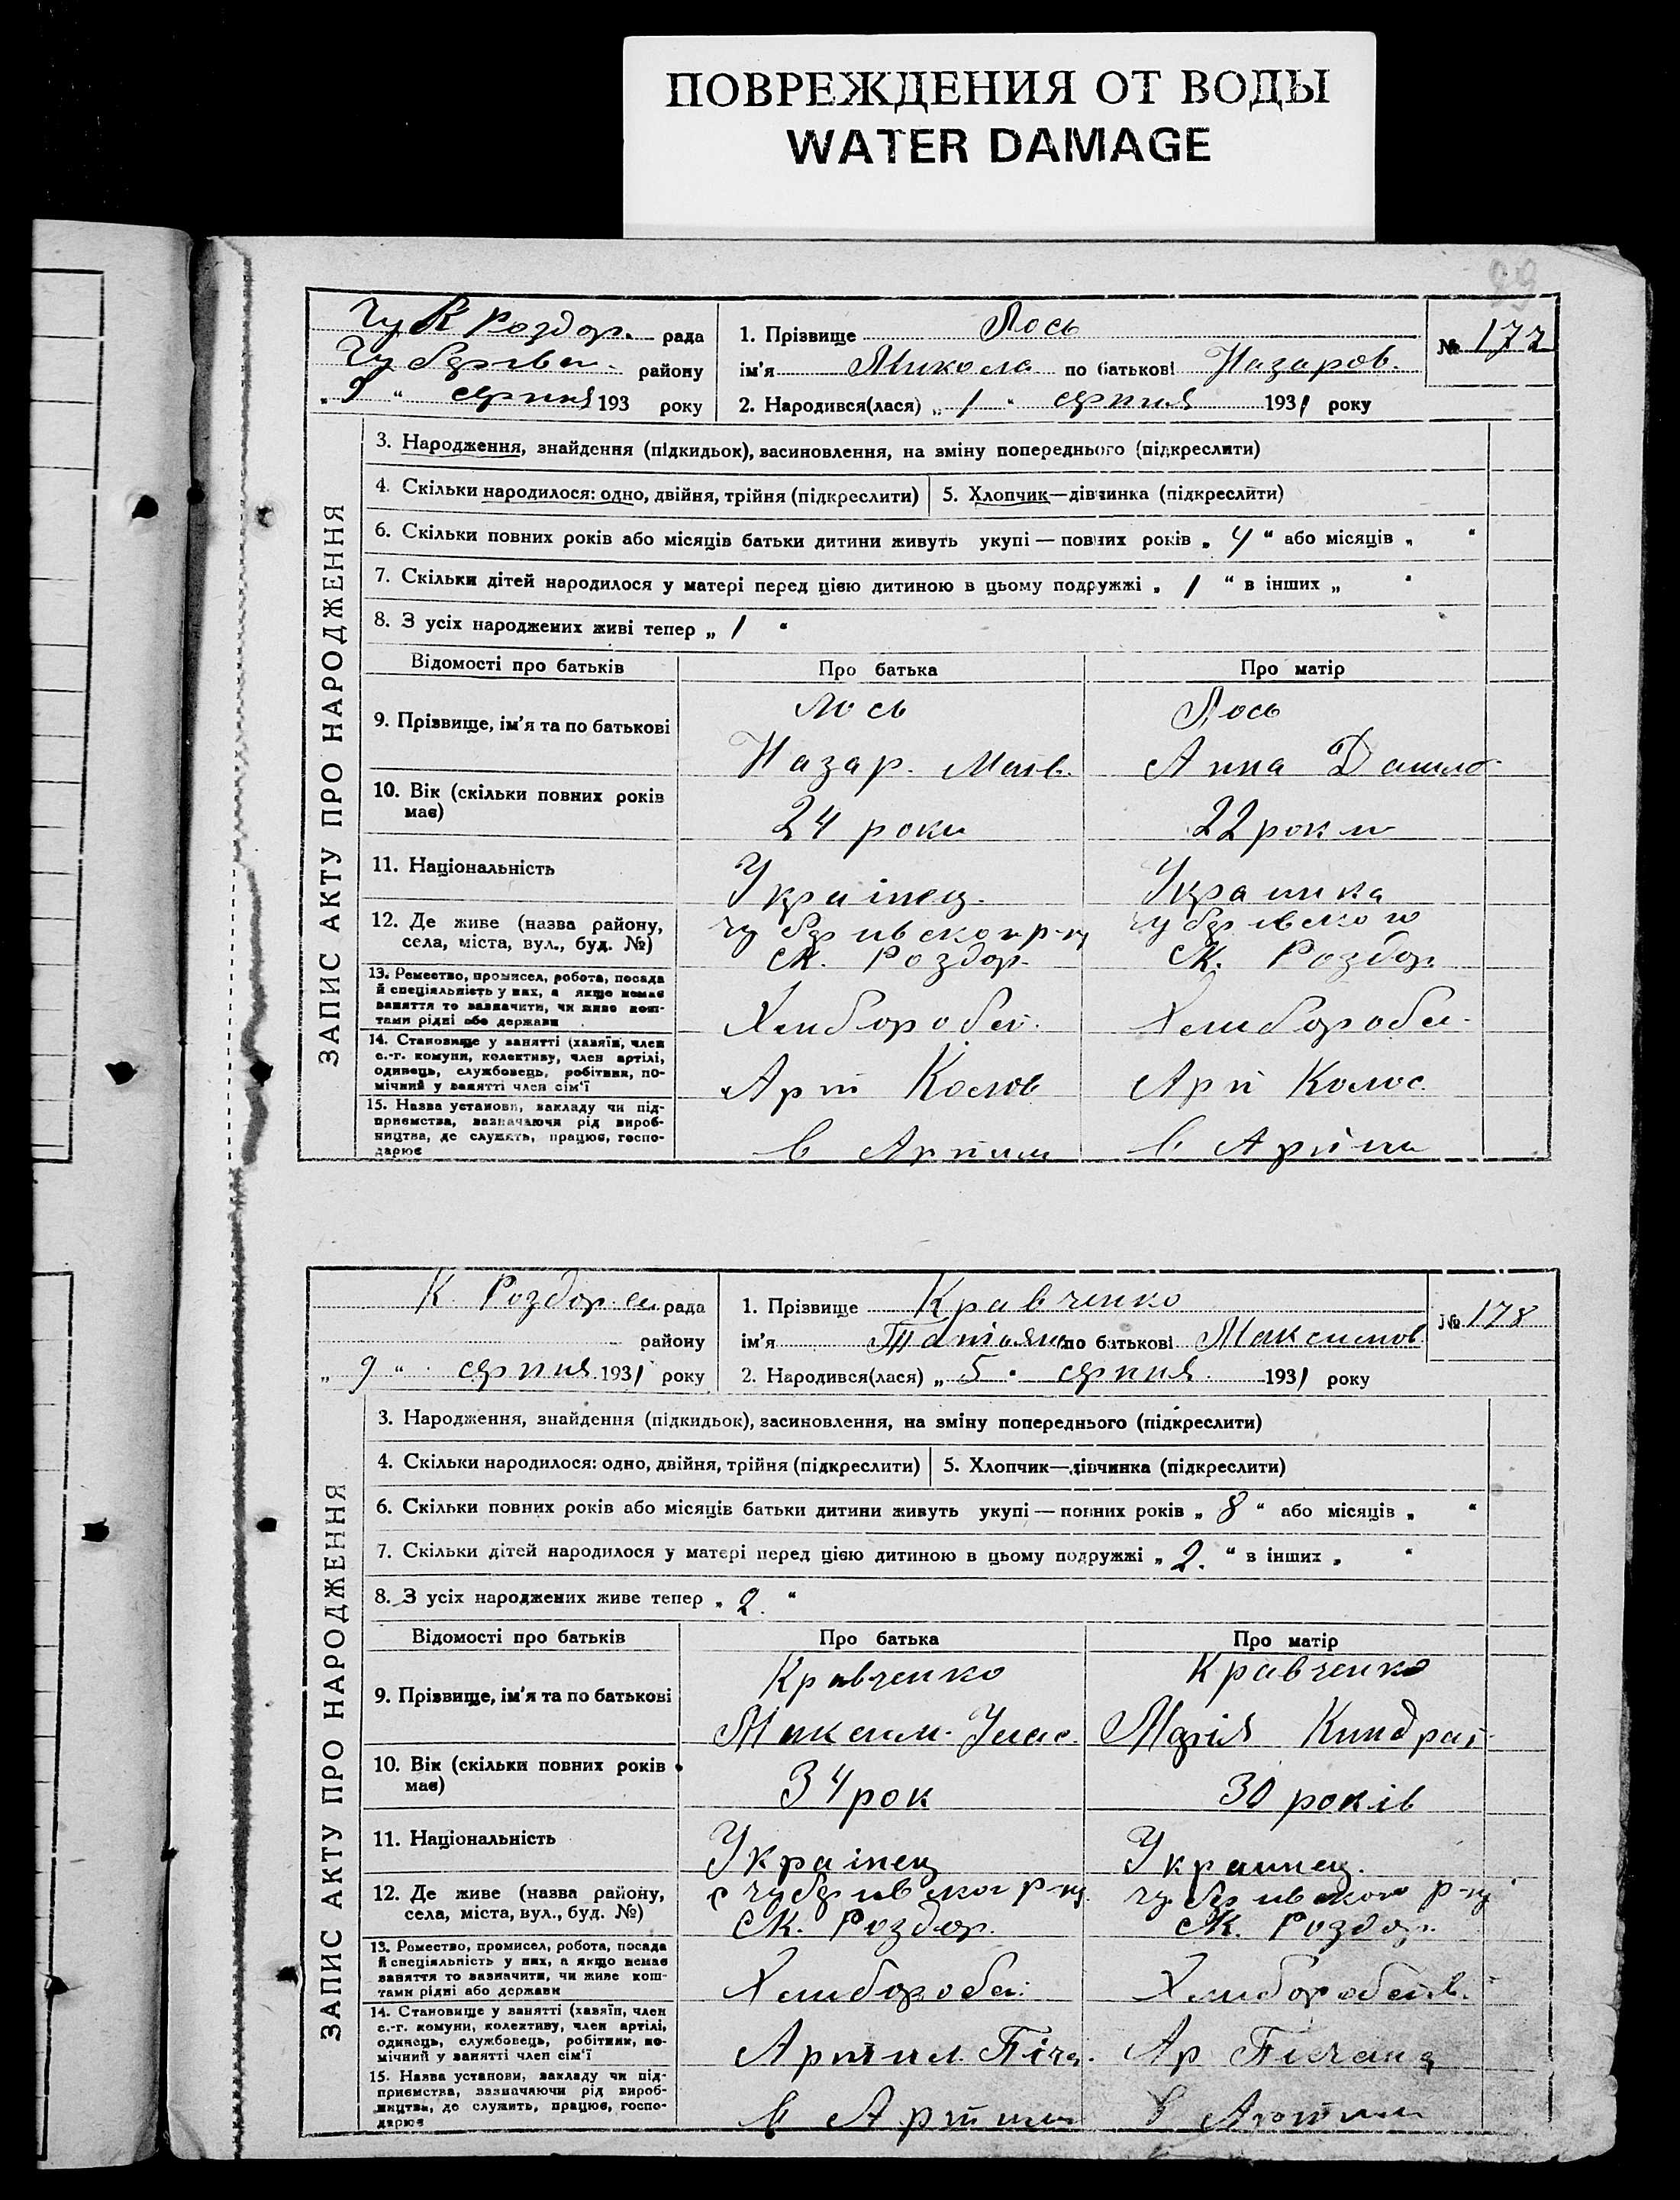 ПОВРЕЖДЕНИЯ ОТ ВОДЫ
WATER DAMAGE
К Роздор. рада
району
9 " серпня 193 року
1. Прізвище Лось
ім'я Микола по батькові Назаров.
2. Народився(лася) „ 1 " серпня 1931 року
№ 177
ЗАПИС АКТУ ПРО НАРОДЖЕННЯ
3. Народження, знайдення (підкидьок), васиновлення, на зміну попереднього (підкреслити)
4. Скільки народилося: одно, двійня, трійня (підкреслити) 5. Хлопчик—дівчинка (підкреслити)
6. Скільки повних років або місяців батьки дитини живуть укупі — повних років „ 4 " або місяців „ "
7. Скільки дітей народилося у матері перед цією дитиною в цьому подружжі „ 1 " в інших „ "
8. З усіх народжених живі тепер „ 1 "
Відомості про батьків Про батька Про матір
9. Прізвище, ім'я та по батькові
Лось Лось
Назар. Матв. Анна Данило
10. Вік (скільки повних років має)
24 роки 22 роки
11. Національність
Українец. Украинка
12. Де живе (назва району, села, міста, вул., буд. №)
К. Роздор. К. Роздор
13. Ремество, промисел, робота, посада
й спеціяльність у них, а якщо немає
заняття то зазначити, чи живе кош-
тами рідні або держави
Хлибороб Хлибороб
14. Становище у занятті (хазяїн, член
с.-г. комуни, колективу, член артілі,
одинець, службовець, робітник, по-
мічний у занятті член сім'ї
Арт Колос Арт Колос
15. Назва установи, закладу чи під-
приємства, зазначаючи рід вироб-
ництва, де служить, працює, госпо-
дарює
в Артили в Артили
К. Роздор рада
району
„ 9 " серпня 1931 року
1. Прізвище Кравченко
ім'я Татьяна по батькові Максимов
2. Народився(лася) „ 5 " серпня 1931 року
№ 178
ЗАПИС АКТУ ПРО НАРОДЖЕННЯ
3. Народження, знайдення (підкидьок), засиновлення, на зміну попереднього (підкреслити)
4. Скільки народилося: одно, двійня, трійня (підкреслити) 5. Хлопчик—дівчинка (підкреслити)
6. Скільки повних років або місяців батьки дитини живуть укупі — повних років „ 8 " або місяців „ "
7. Скільки дітей народилося у матері перед цією дитиною в цьому подружжі „ 2. " в інших „ "
8. З усіх народжених живе тепер „ 2. "
Відомості про батьків Про батька Про матір
9. Прізвище, ім'я та по батькові
Кравченко Кравченко
Максим Марія Киндрат
10. Вік (скільки повних років має)
34 рок 30 років
11. Національність
Українец Украинец.
12. Де живе (назва району, села, міста, вул., буд. №)
К. Роздор. К. Роздор.
13. Ремество, промисел, робота, посада
й спеціяльність у них, а якщо немає
заняття то зазначити, чи живе кош-
тами рідні або держави
Хлибороб
14. Становище у занятті (хазяїн, член
с.-г. комуни, колективу, член артілі,
одинець, службовець, робітник, по-
мічний у занятті член сім'ї
Артил.
15. Назва установи, закладу чи під-
приємства, зазначаючи рід вироб-
ництва, де служить, працює, госпо-
дарює
в Артили в Артили